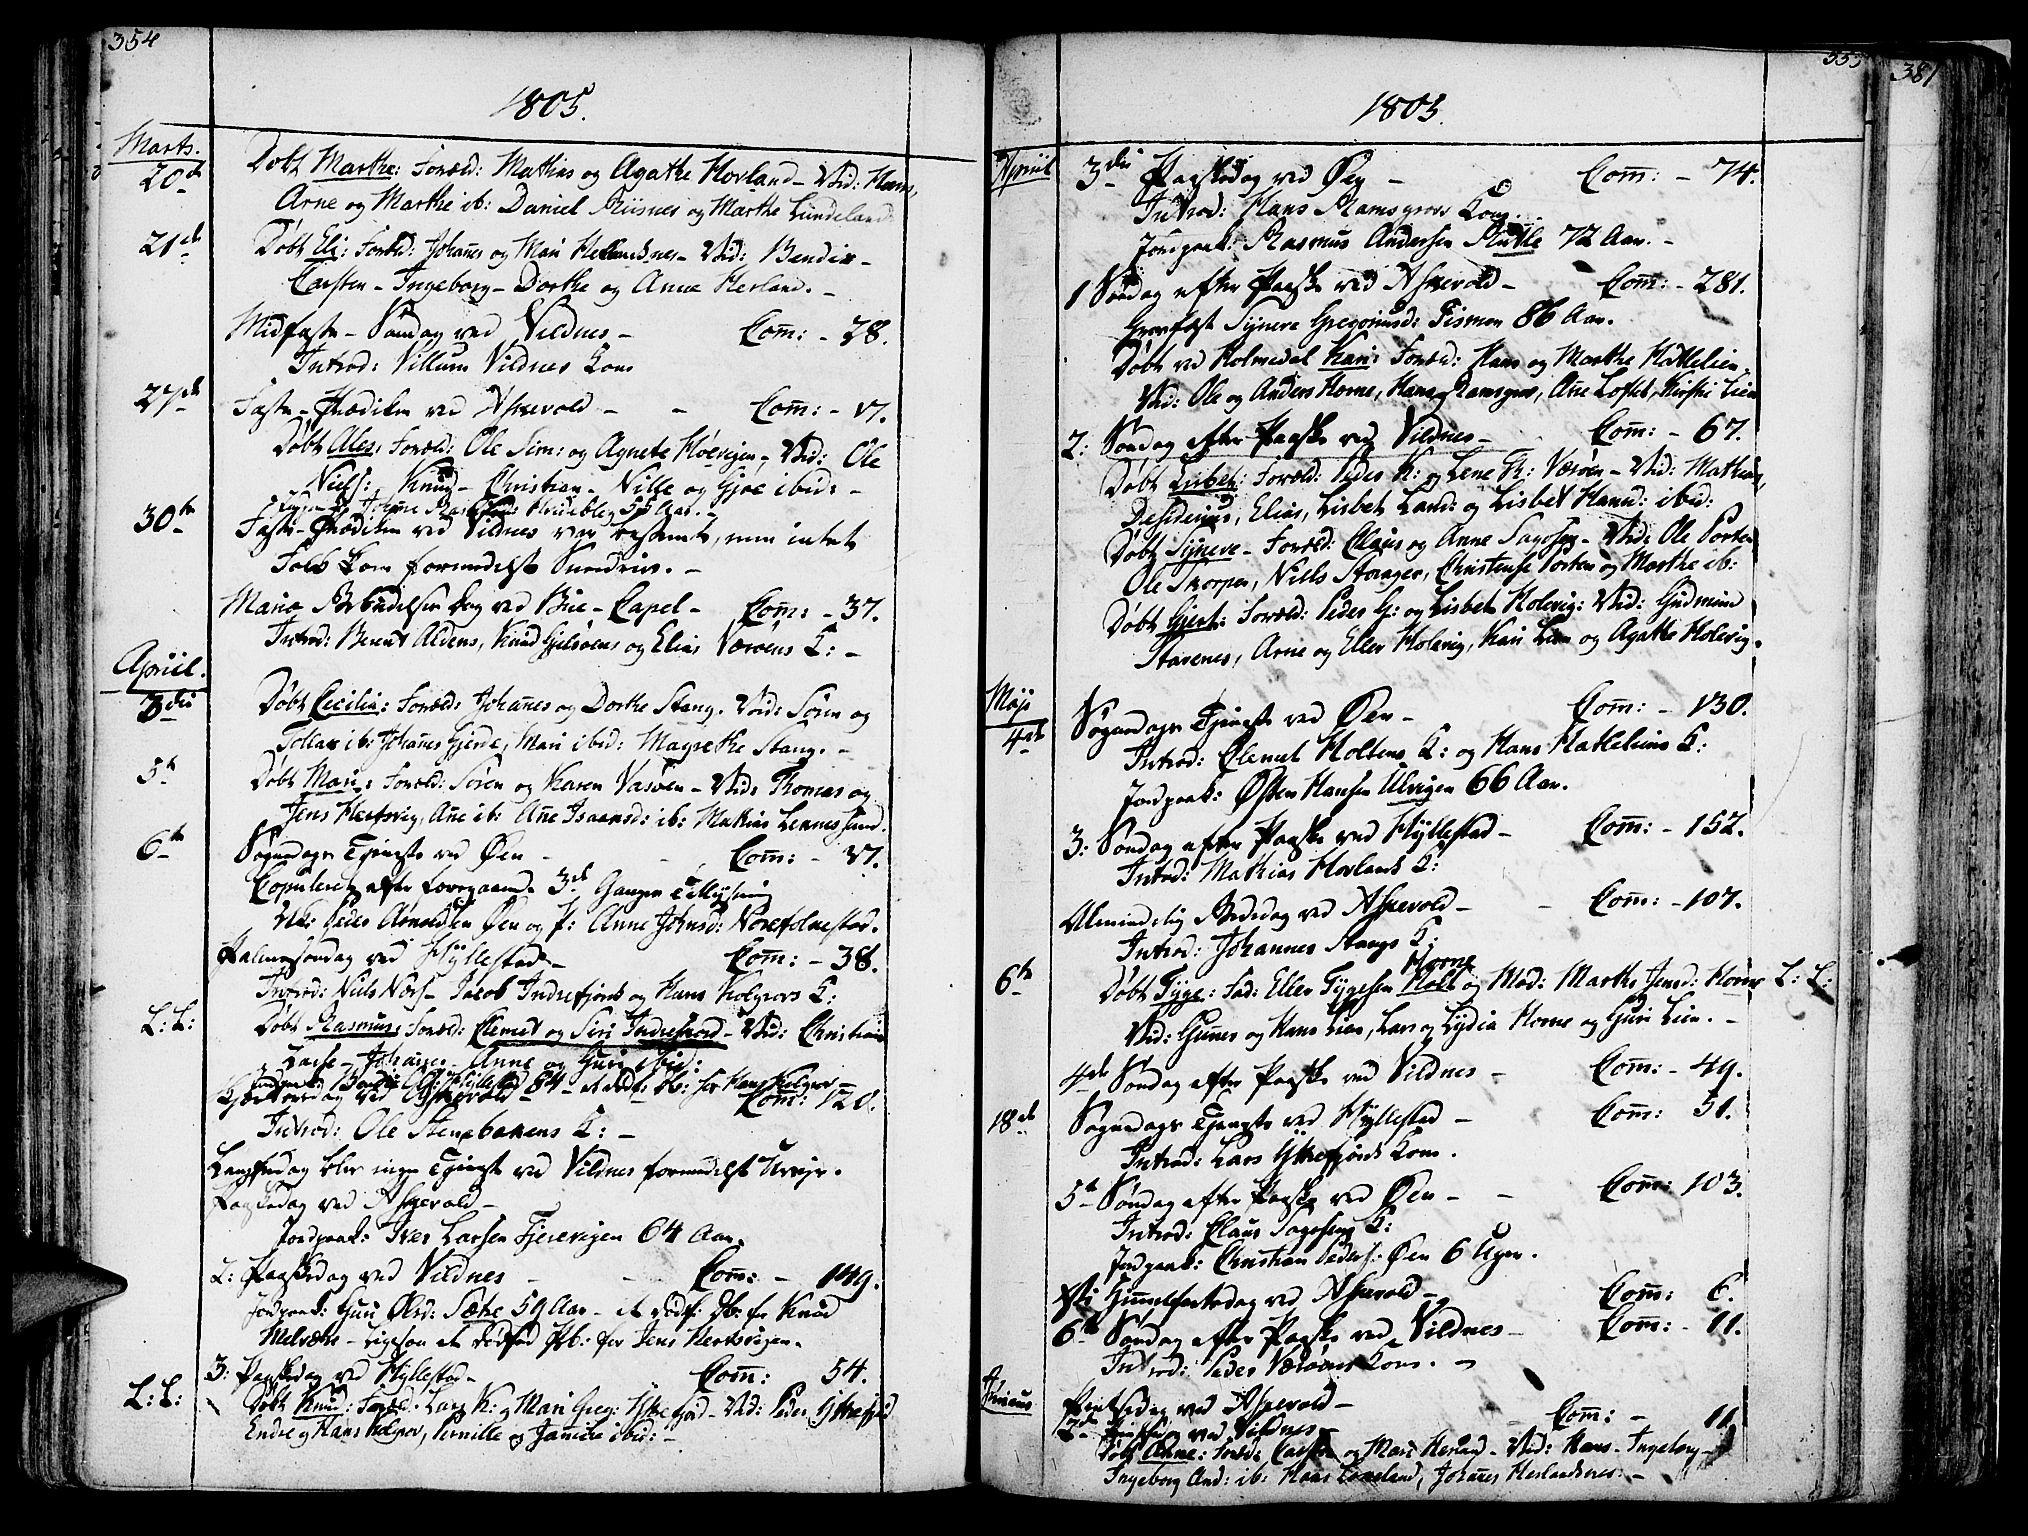 354
1805.
Marts.
20de Døbt Marthe: Foræld: Mathias og Agathe Hovland - Vid: Hans,
Arne og Marthe ib: Daniel Risnes og Marthe Lundeland.
21de Døbt Eli: Foræld: Johanes og Mari Herlandsnes - Vid: Bendix -
Carsten - Ingeborg - Dorthe og Anne Herland. -
Midfaste - Søndag ved Vildnes - Com: - 28.
Introd: Villum Vildnes Kone
27de Faste-Prædiken ved Askevold - - Com: - 17.
Døbt Ales: Foræld: Ole Sim: og Agnete Høevigen - Vid: Ole
Niels: Knud - Christian - Nille og Gjøe ibid: -
55 Aar. -
30te Faste-Prædiken ved Vildnes var bestemt, men intet
Folk kom formedelst Sneedriv. -
Mariæ Bebudelses Dag ved Bue-Capel - Com: - 37.
Introd: Berent Aldens, Knud Gjelsøens og Elias Værøens K: -
Apriil.
3die Døbt Cecilia: Foræld: Johanes og Dorthe Stang. Vid: Sören og
Tollav ib: Johanes Gjerde, Mari ibid: Magrethe Stang. -
5te Døbt Mari: Foræld: Sören og Karen Vasöen - Vid: Thomas og
Jens Hertsvig, Ane ib: Ane Isaansd: ib: Mathias Lennessund.
6te Søgnedags Tjeneste ved Øen - - Com: - 37.
Copuleret efter foregaaende 3de Ganges Tillysning
Uk: Peder Arnoldsen Øen og P: Anne Johnsd: Norefolnestad.
Palmesøndag ved Hyllestad - Com: - 38.
Introd: Niels Nors - Jacob Indrefjords og Hans Kolgrovs K:
L: L: Døbt Rasmus: Foræld: Clemet og Siri Indrefiord - Vid: Christian
Lasse - Johanes - Anne og Guri ibid:
Hyllestad 84 - et dødf: B: for Hans Kolgrov -
Skjærtorsdag ved Askevold - Com: 120.
Introd: Ole Stenebakens K: -
Langfredag blev ingen Tjeneste ved Vildnes formedelst Uveyr.
Paaskedag ved Askevold -
Jordpaak: Iver Larsen Fjerevigen 64 Aar.
2: Paaskedag ved Vildnes - - Com: - 149.
Jordpaak: Guri Olsd: Sætre 59 Aar - et dødf: Pb: for Knud
Melværs - ligesom et dødfød Pb: for Jens Hertsvigen.
3: Paaskedag ved Hyllestad - Com: 54.
L: L: Døbt Knud: Foræld: Lars K: og Mari Greg: Yttrefjord - Vid: Peder Yttrefjord
Endre og Hans Kolgrov, Pernille og Janicke ibid: -
355
381
1805.
Apriil 3die Paaskedag ved Øen - Com: - 74.
Introd: Hans Ramsgrovs Kone.
Jordpaak: Rasmus Andersen Rutle 72 Aar. -
1 Søndag efter Paaske ved Askevold - Com: - 281.
Gravfæst Synneve Gregoriusd: Tismon 86 Aar.
Døbt ved Holmedal Kari: Foræld: Hans og Marthe Hattelien
Vid: Ole og Anders Horne, Hans Ramsgrov, Ane Loftet, Kirsti Lien
2: Søndag efter Paaske ved Vildnes - Com: - 67.
Døbt Lisbet: Foræld: Peder K: og Lene R: Værøen - Vid: Mathias,
Desiderius, Elias, Lisbet Land: og Lisbet Hansd: ibid:
Døbt Synneve - Foræld: Claus og Anne Sagosen - Vid: Ole Porten
Ole Skorpen, Niels Storager, Christense Porten og Marthe ib:
Døbt Gjert: Foræld: Peder G: og Lisbet Holevig: Vid: Gudmun
Stavenes, Arne og Eller Holevig, Kari Lien og Agathe Holevig.
Maji
4de Søgnedags Tjeneste ved Øen - Com: - 130.
Introd: Clemet Holtens K: og Hans Hatleliens K:
Jordpaak: Østen Hansen Ulvigen 66 Aar.
3: Søndag efter Paaske ved Hyllestad - Com: - 152.
Introd: Mathias Hovlands K:
Almindelig Bededag ved Askevold - - Com: - 107.
Introd: Johannes Stangs K:
Horne
6te Døbt Tyge: Fad: Eller Tygesen Holt og Mod: Marthe Jensd: Horne L: L:
Vid: Gunnes og Hans Lien, Lars og Lydia Horne og Guri Lien. -
4de Søndag efter Paaske ved Vildnes - Com: - 49.
18de Søgnedags Tjeneste ved Hyllestad - Com: 51.
Introd: Lars Yttrefjords Kone.
5te Søndag efter Paaske ved Øen - - Com: 103.
Introd: Claus Sagosens K:
Jordpaak: Christian Peders: Øen 6 Uger.
Xsti Himmelfartsdag ved Askevold - Com: 6.
6te Søndag efter Paaske ved Vildnes - Com: - 11.
Introd: Peder Værøens Kone. -
Junius Pintsedag ved Askevold -
2de Pintsedag ved Vildnes - Com: - 11.
Døbt Anne: Foræld: Carsten og Mari Herland - Vid: Hans - Ingeborg -
Ingeborg And: ib: Hans Loneland, Johanes Herlandsnes: -